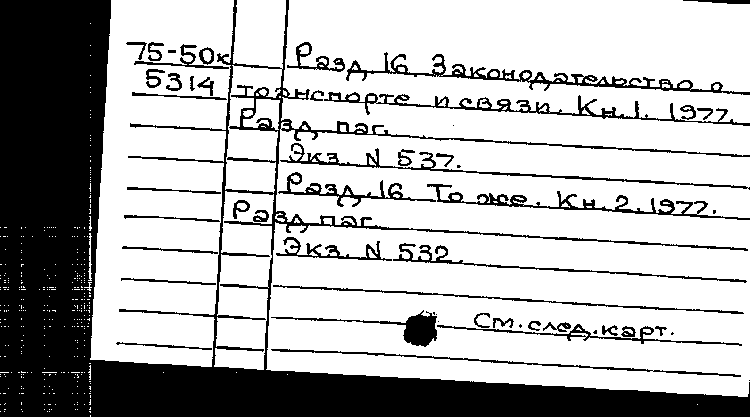 75-50к Разд. 16. Законодательство о
5314 транспорте и связи. Кн. 1. 1977.
Разд. паг.
Экз. N 537.
Разд. 16. То же. Кн. 2. 1977.
Разд. паг.
Экз. N 532.
См. след. карт.